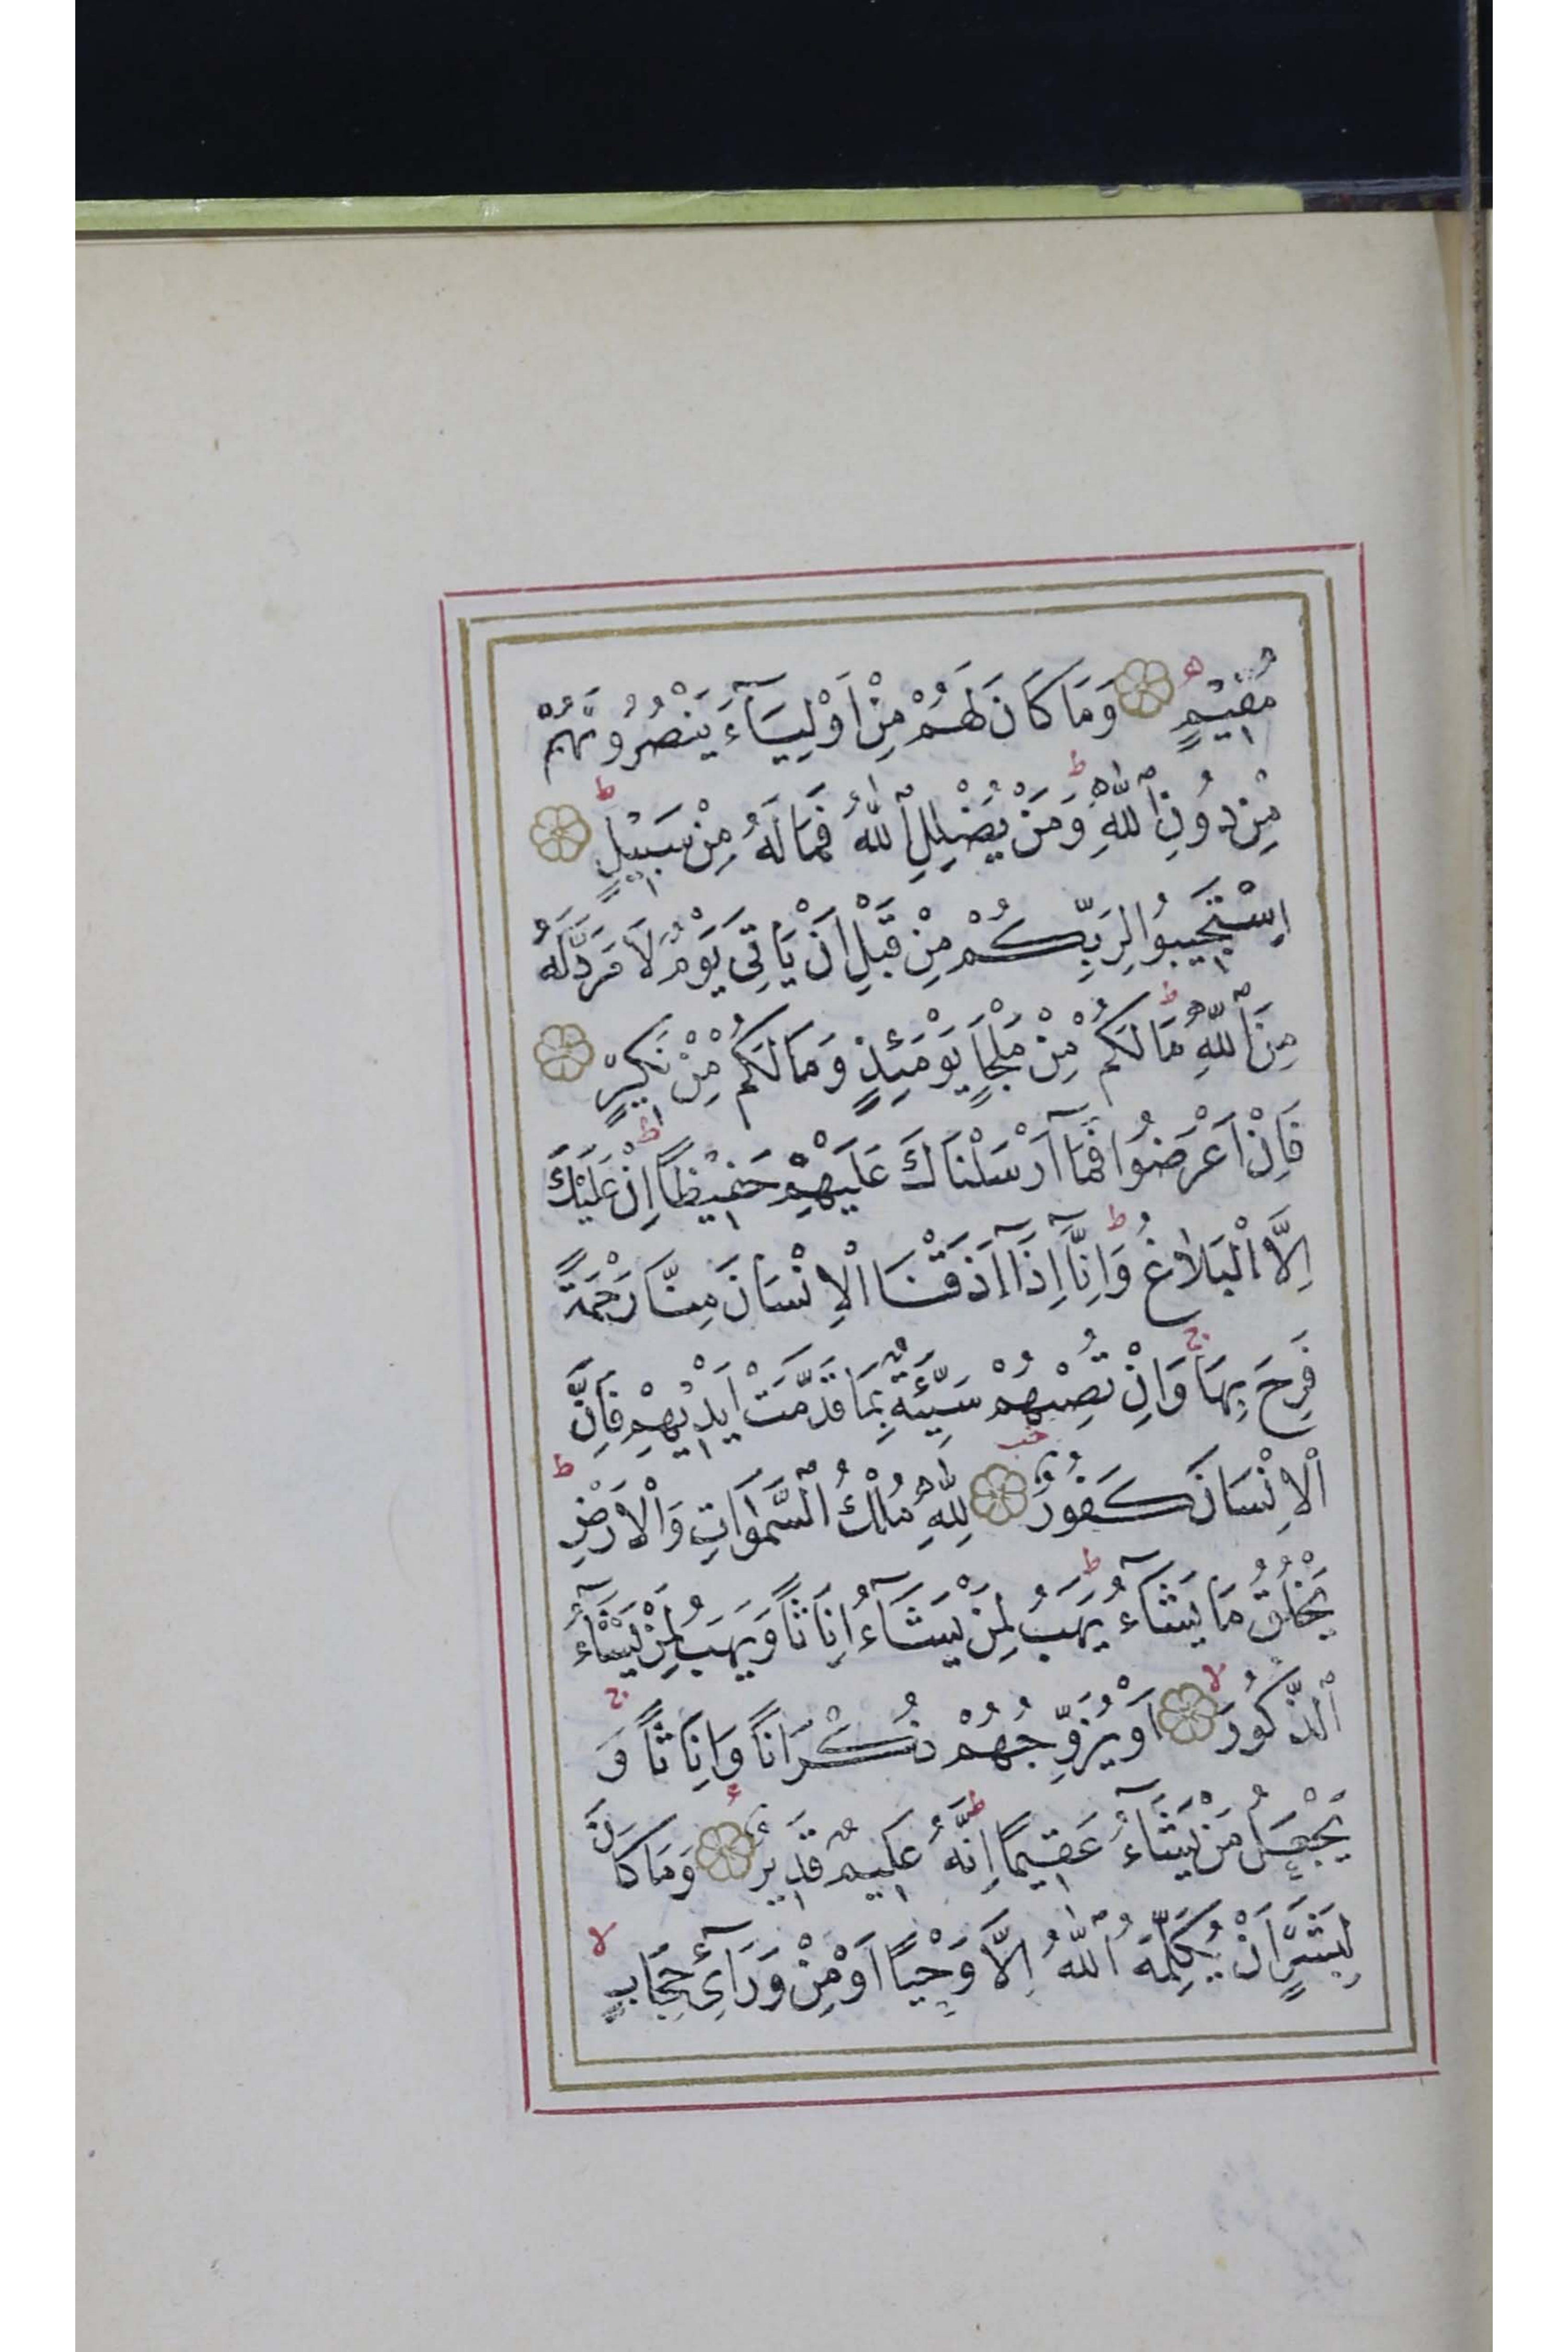 مُقِيمٍ ه وَمَا كَانَ لَهُمْ مِنْ اَوْلِيَآءَ يَنْصُرُونَهُمْ
مِنْ دُونِ ٱللّٰهِ ط وَمَنْ يُضْلِلِ ٱللّٰهُ فَمَا لَهُ مِنْ سَبِيلٍ ط
اِسْتَجِيبُوا لِرَبِّكُمْ مِنْ قَبْلِ اَنْ يَاْتِىَ يَوْمٌ لَا مَرَدَّ لَهُ
مِنَ ٱللّٰهِ ط مَا لَكُمْ مِنْ مَلْجَاٍ يَوْمَئِذٍ وَمَا لَكُمْ مِنْ نَكِيرٍ
فَاِنْ اَعْرَضُوا فَمَآ اَرْسَلْنَاكَ عَلَيْهِمْ حَفِيظًا ط اِنْ عَلَيْكَ
اِلَّا الْبَلَاغُ ط وَاِنَّآ اِذَآ اَذَقْنَا الْاِنْسَانَ مِنَّا رَحْمَةً
فَرِحَ بِهَا ج وَاِنْ تُصِبْهُمْ سَيِّئَةٌ بِمَا قَدَّمَتْ اَيْدِيهِمْ فَاِنَّ
الْاِنْسَانَ كَفُورٌ لِلّٰهِ مُلْكُ ٱلسَّمٰوَاتِ وَالْاَرْضِ ط
يَخْلُقُ مَا يَشَآءُ ط يَهَبُ لِمَنْ يَشَآءُ اِنَاثًا وَيَهَبُ لِمَنْ يَشَآءُ
ٱلذُّكُورَ لا اَوْ يُزَوِّجُهُمْ ذُكْرَانًا وَاِنَاثًا ج وَ
يَجْعَلُ مَنْ يَشَآءُ عَقِيمًا ط اِنَّهُ عَلِيمٌ قَدِيرٌ ء وَمَا كَانَ
لِبَشَرٍ اَنْ يُكَلِّمَهُ ٱللّٰهُ اِلَّا وَحْيًا اَوْ مِنْ وَرَآئِ حِجَابٍ لا